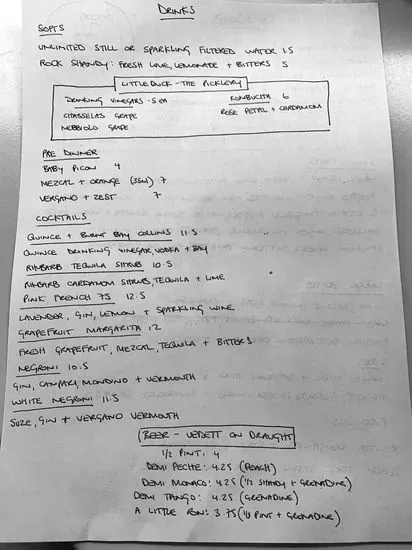 DRINKS
SOFTS
UNLIMITED STILL OR SPARKLING FILTERED WATER 1.5
ROCK SHANDY: FRESH LIME, LEMONADE + BITTERS 5
LITTLEDUCK - THE PICKLERY
DRINKING VINEGARS - 5 EA
CHASSELAS GRAPE
NEBBIOLO GRAPE
KOMBUCHA 6
ROSE PETAL + CARDAMOM
PRE DINNER
BABY PICON 4
MEZCAL + ORANGE (35ML) 7
VERGANO + ZEST 7
COCKTAILS
QUINCE + BURNT BAY COLLINS 11.5
QUINCE DRINKING VINEGAR, VODKA + BAY
RHUBARB TEQUILA SHRUB 10.5
RHUBARB CARDAMOM SHRUB, TEQUILA + LIME
PINK FRENCH 75 12.5
LAVENDER, GIN, LEMON + SPARKLING WINE
GRAPEFRUIT MARGARITA 12
FRESH GRAPEFRUIT, MEZCAL, TEQUILA + BITTERS
NEGRONI 10.5
GIN, CAMPARI, MONDINO + VERMOUTH
WHITE NEGRONI 11.5
SUZE, GIN + VERGANO VERMOUTH
BEER - VEDETT ON DRAUGHT
1/2 PINT: 4
DEMI PECHE: 4.25 (PEACH)
DEMI MONACO: 4.25 (1/2 SHANDY + GRENADINE)
DEMI TANGO: 4.25 (GRENADINE)
A LITTLE 3.75 (1/3 PINT + GRENADINE)